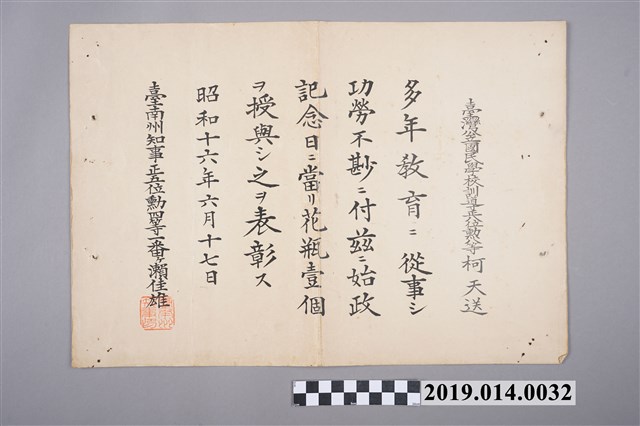 臺灣公立國民學校訓導正八位勲八等 柯天送
多年教育ニ從事シ
功勞不尠ニ付茲ニ始政
記念日ニ當リ花瓶壹個
ヲ授與シ之ヲ表彰ス
昭和十六年六月十七日
臺南州知事正五位勳四等一番ヶ瀨佳雄
2019.014.0032